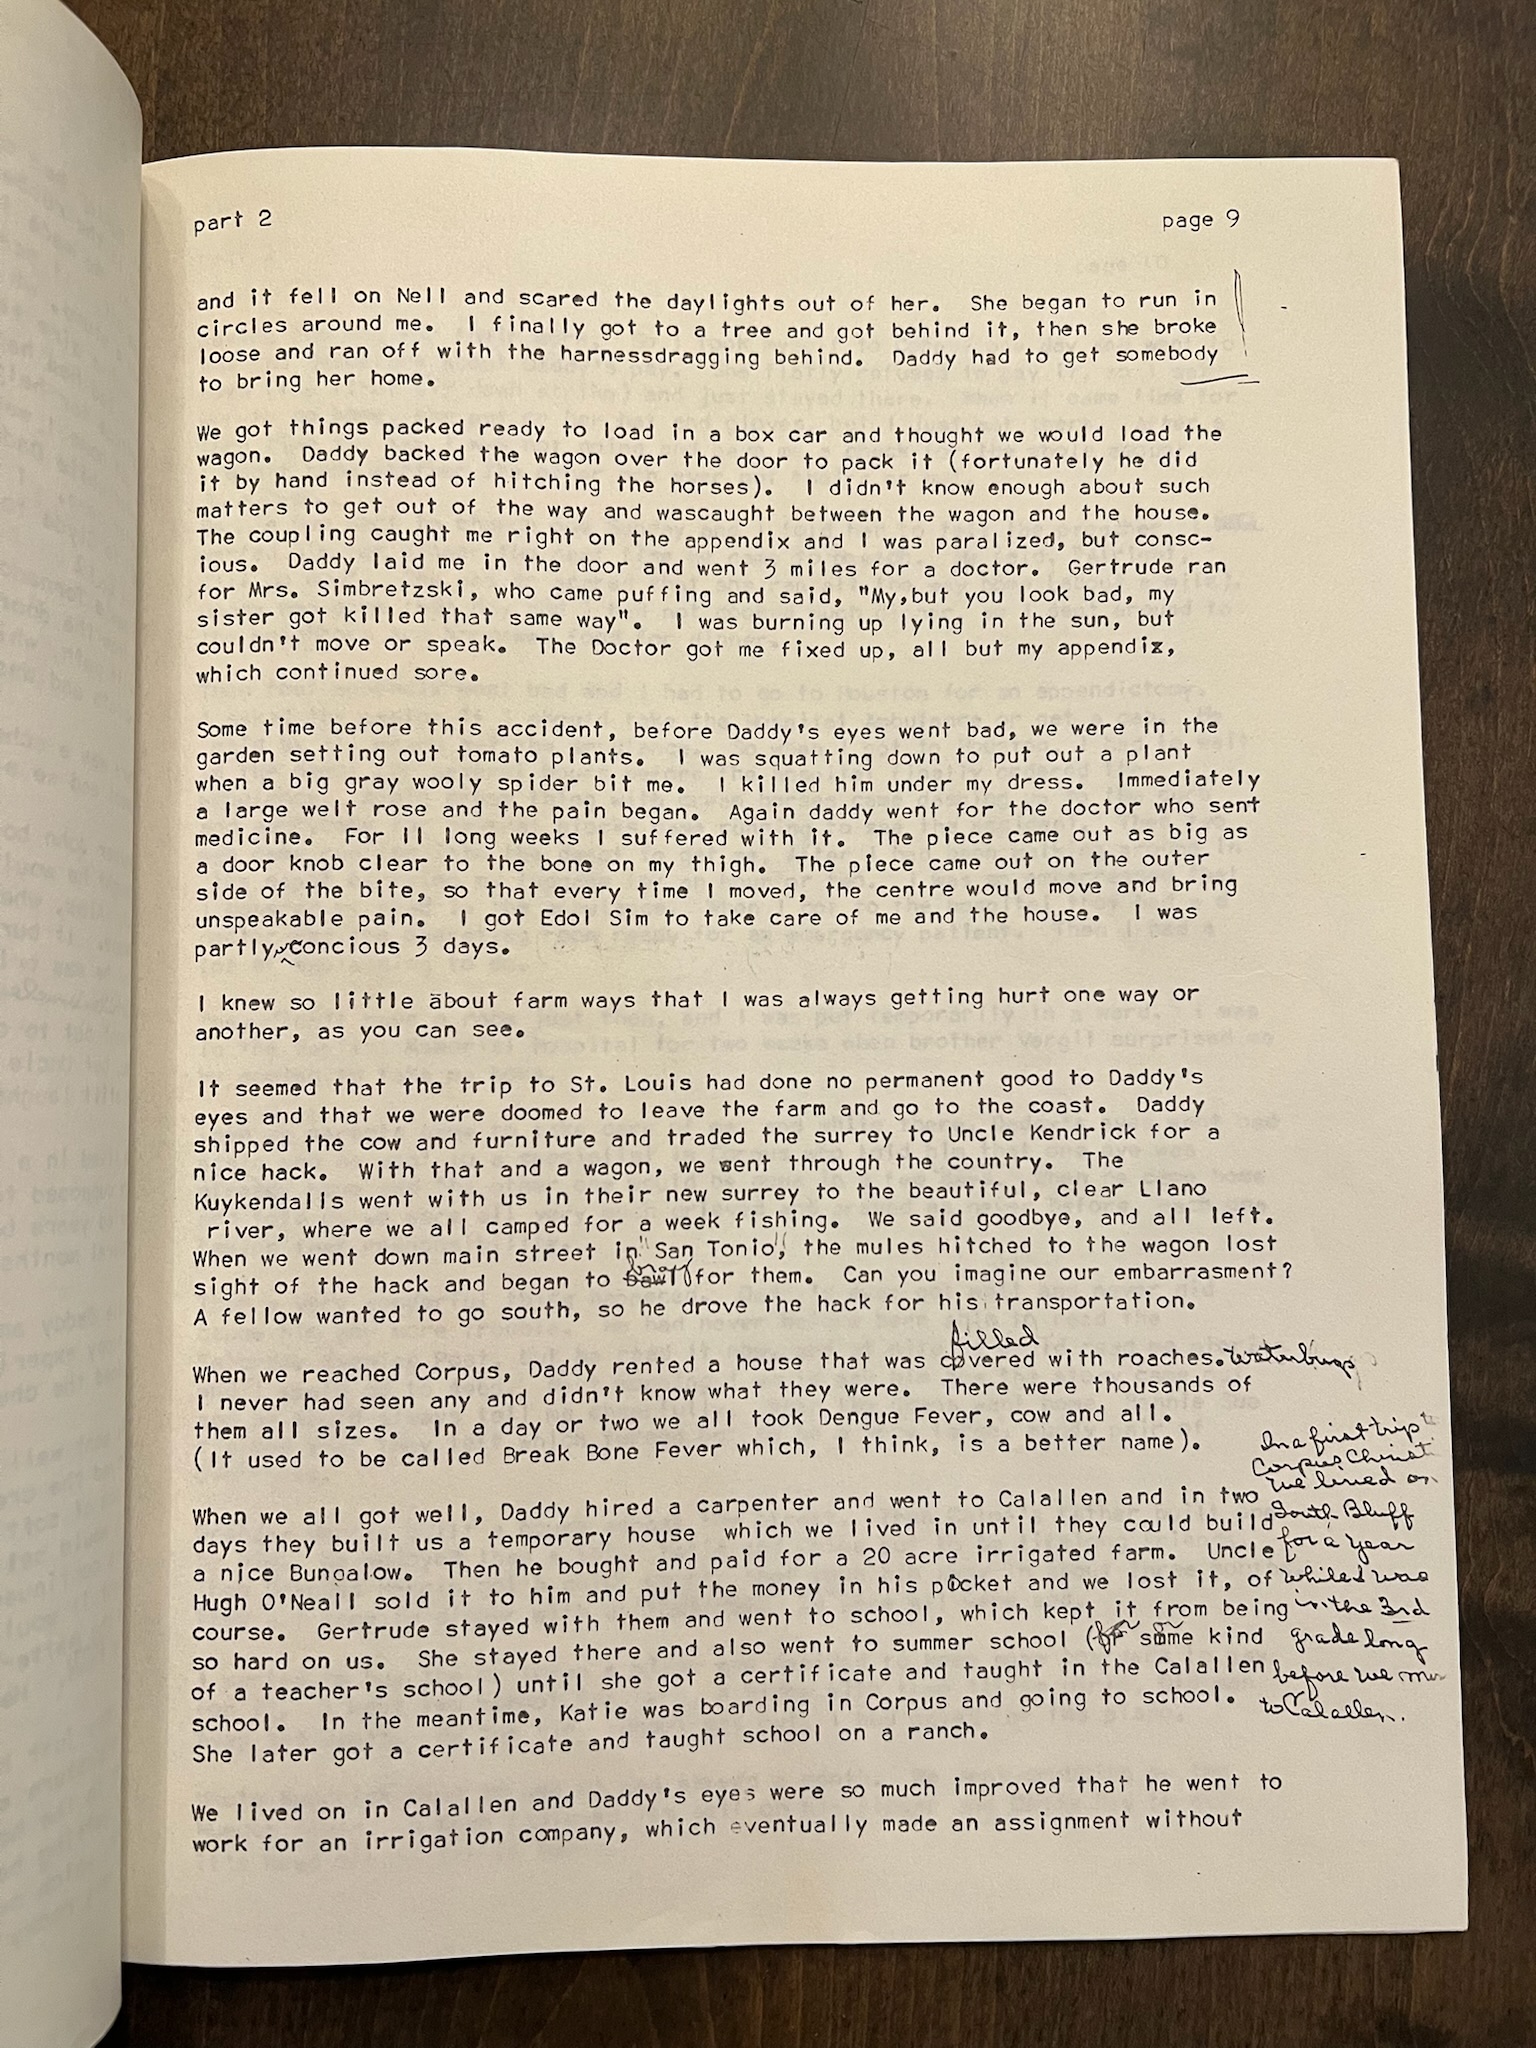 part 2 page 9
and it fell on Nell and scared the daylights out of her. She began to run in
circles around me. I finally got to a tree and got behind it, then she broke
loose and ran off with the harnessdragging behind. Daddy had to get somebody
to bring her home.
We got things packed ready to load in a box car and thought we would load the
wagon. Daddy backed the wagon over the door to pack it (fortunately he did
it by hand instead of hitching the horses). I didn't know enough about such
matters to get out of the way and wascaught between the wagon and the house.
The coupling caught me right on the appendix and I was paralized, but consc-
ious. Daddy laid me in the door and went 3 miles for a doctor. Gertrude ran
for Mrs. Simbretzski, who came puffing and said, "My,but you look bad, my
sister got killed that same way". I was burning up lying in the sun, but
couldn't move or speak. The Doctor got me fixed up, all but my appendix,
which continued sore.
Some time before this accident, before Daddy's eyes went bad, we were in the
garden setting out tomato plants. I was squatting down to put out a plant
when a big gray wooly spider bit me. I killed him under my dress. Immediately
a large welt rose and the pain began. Again daddy went for the doctor who sent
medicine. For 11 long weeks I suffered with it. The piece came out as big as
a door knob clear to the bone on my thigh. The piece came out on the outer
side of the bite, so that every time I moved, the centre would move and bring
unspeakable pain. I got Edol Sim to take care of me and the house. I was
partly concious 3 days.
I knew so little about farm ways that I was always getting hurt one way or
another, as you can see.
It seemed that the trip to St. Louis had done no permanent good to Daddy's
eyes and that we were doomed to leave the farm and go to the coast. Daddy
shipped the cow and furniture and traded the surrey to Uncle Kendrick for a
nice hack. With that and a wagon, we went through the country. The
Kuykendalls went with us in their new surrey to the beautiful, clear Llano
river, where we all camped for a week fishing. We said goodbye, and all left.
When we went down main street in "San Tonio", the mules hitched to the wagon lost
bray
sight of the hack and began to bawl for them. Can you imagine our embarrasment?
A fellow wanted to go south, so he drove the hack for his transportation.
filled
When we reached Corpus, Daddy rented a house that was covered with roaches. Waterbugs
I never had seen any and didn't know what they were. There were thousands of
them all sizes. In a day or two we all took Dengue Fever, cow and all.
(It used to be called Break Bone Fever which, I think, is a better name).
When we all got well, Daddy hired a carpenter and went to Calallen and in two
days they built us a temporary house which we lived in until they could build
a nice Bungalow. Then he bought and paid for a 20 acre irrigated farm. Uncle
Hugh O'Neall sold it to him and put the money in his pocket and we lost it, of
course. Gertrude stayed with them and went to school, which kept it from being
so hard on us. She stayed there and also went to summer school (for some kind
of a teacher's school) until she got a certificate and taught in the Calallen
school. In the meantime, Katie was boarding in Corpus and going to school.
She later got a certificate and taught school on a ranch.
We lived on in Calallen and Daddy's eyes were so much improved that he went to
work for an irrigation company, which eventually made an assignment without
a first trip
Corpus Christi
we lived on
South Bluff
for a year
while I was
in the 3rd
grade long
before we
to Calallen.